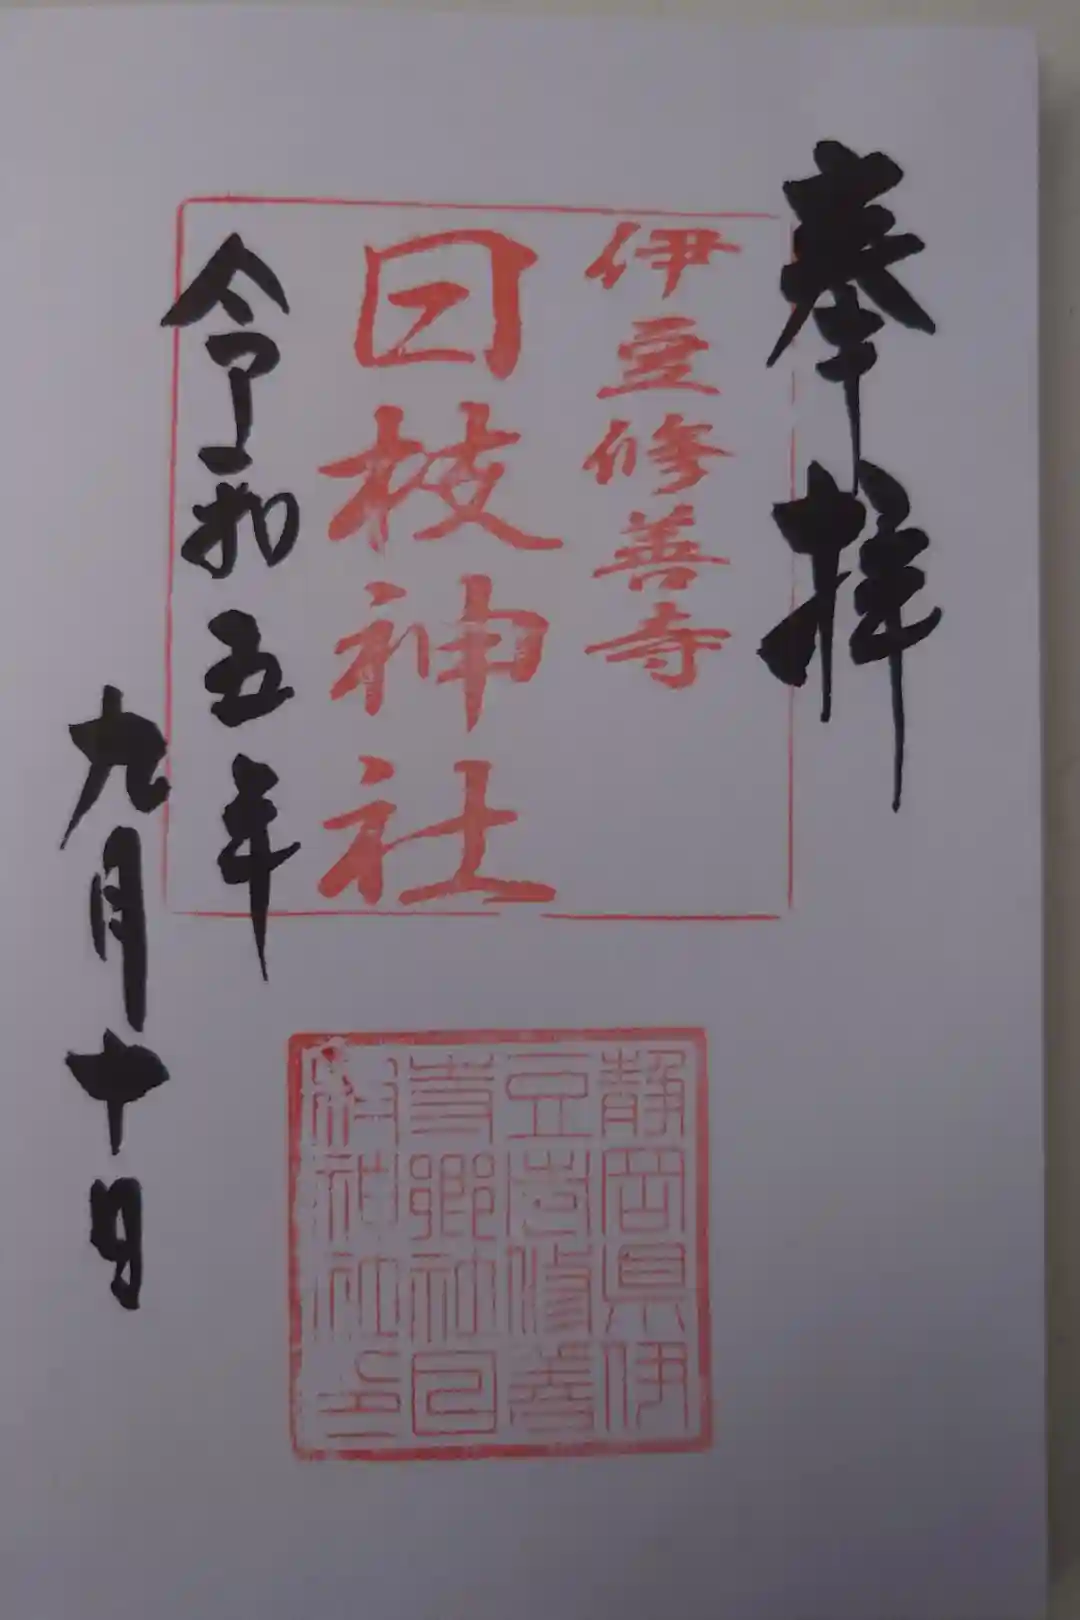 奉拝
伊豆修善寺
日枝神社
令和五年
九月十日
静岡県伊
豆国修善
寺郷社日
枝神社印